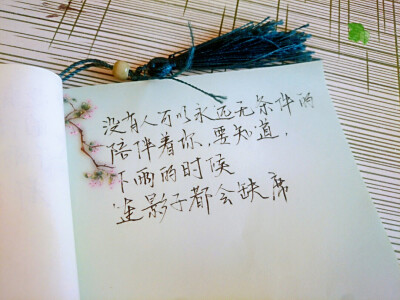 没有人可以永远无条件的
陪伴着你，要知道，
下雨的时候
连影子都会缺席